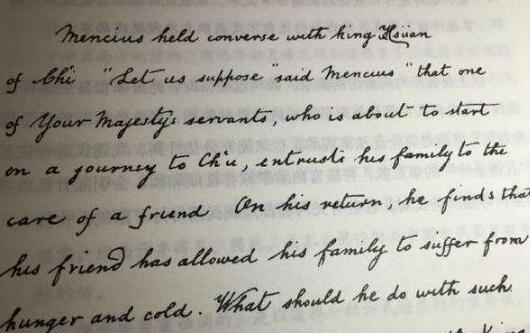 Mencius held converse with king Hsüan
of Ch'i "Let us suppose" said Mencius "that one
of Your Majesty's servants, who is about to start
on a journey to Ch'u, entrusts his family to the
care of a friend On his return, he finds that
his friend has allowed his family to suffer from
hunger and cold. What should he do with such